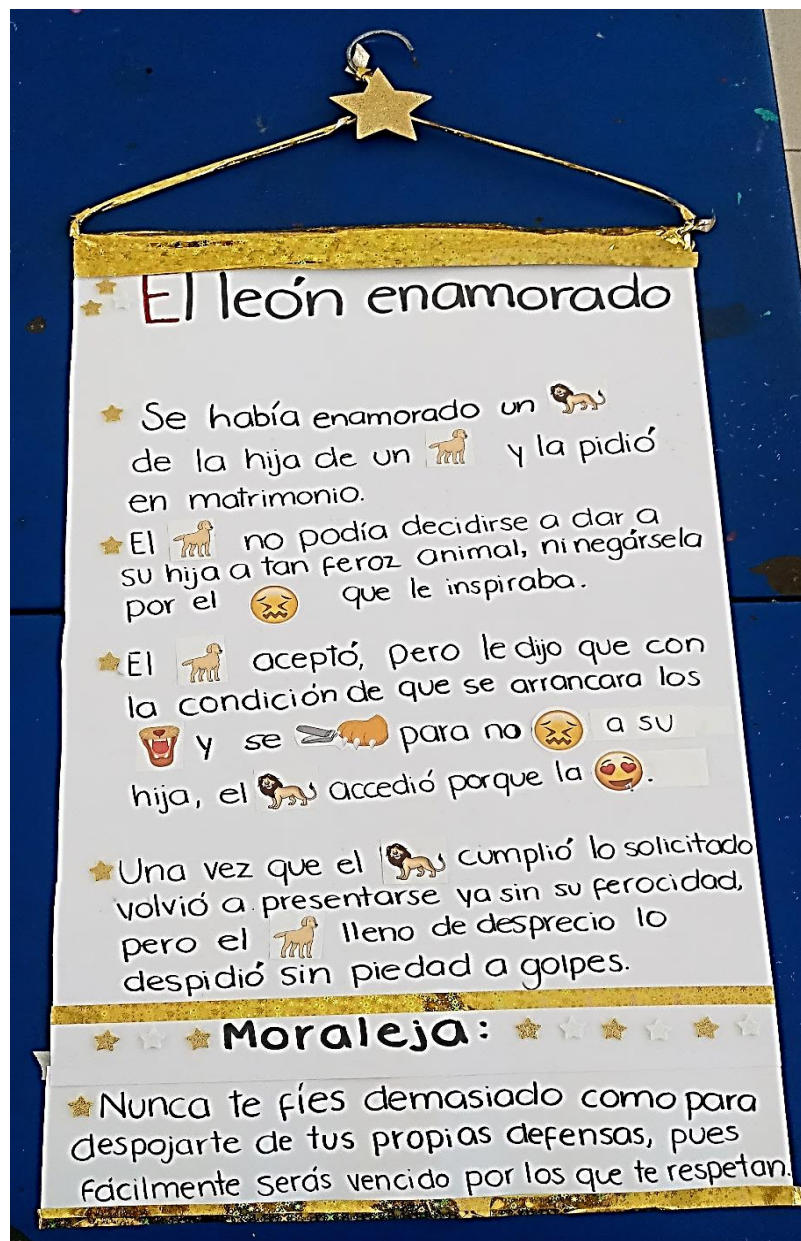 El león enamorado
Se había enamorado un
de la hija de un y la pidió
en matrimonio.
El no podía decidirse a dar a
su hija a tan feroz animal, ni negársela
por el que le inspiraba.
El aceptó, pero le dijo que con
la condición de que se arrancara los
y se para no a su
hija, el accedió porque la .
Una vez que el cumplió lo solicitado
volvió a presentarse ya sin su ferocidad,
pero el lleno de desprecio lo
despidió sin piedad a golpes.
Moraleja:
Nunca te fíes demasiado como para
despojarte de tus propias defensas, pues
fácilmente serás vencido por los que te respetan.